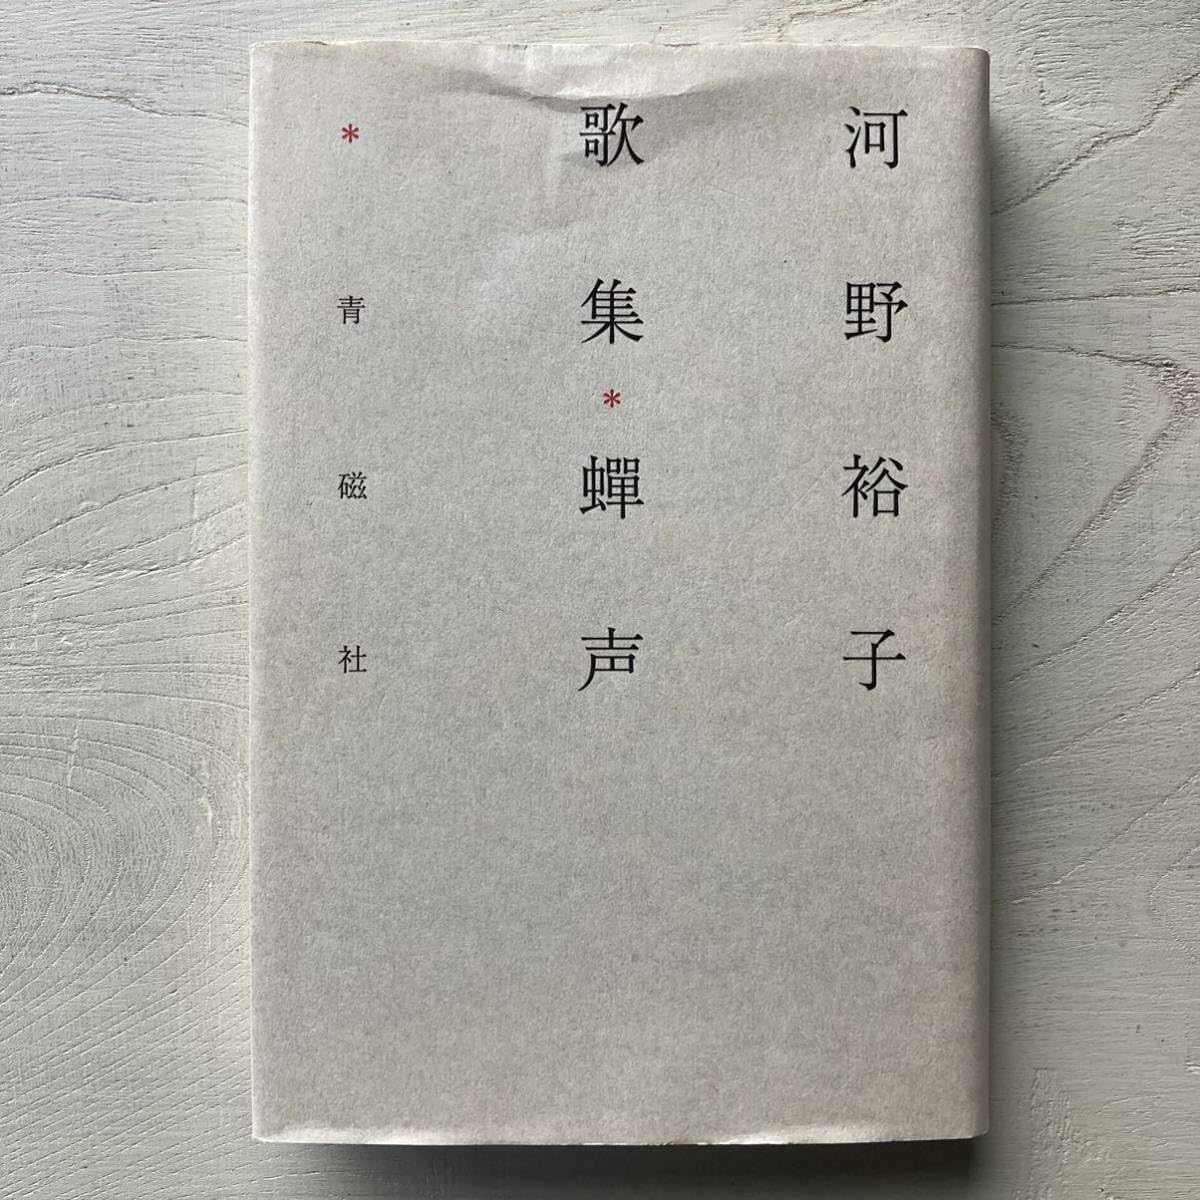 河野裕子
歌集*蟬声
*青磁社